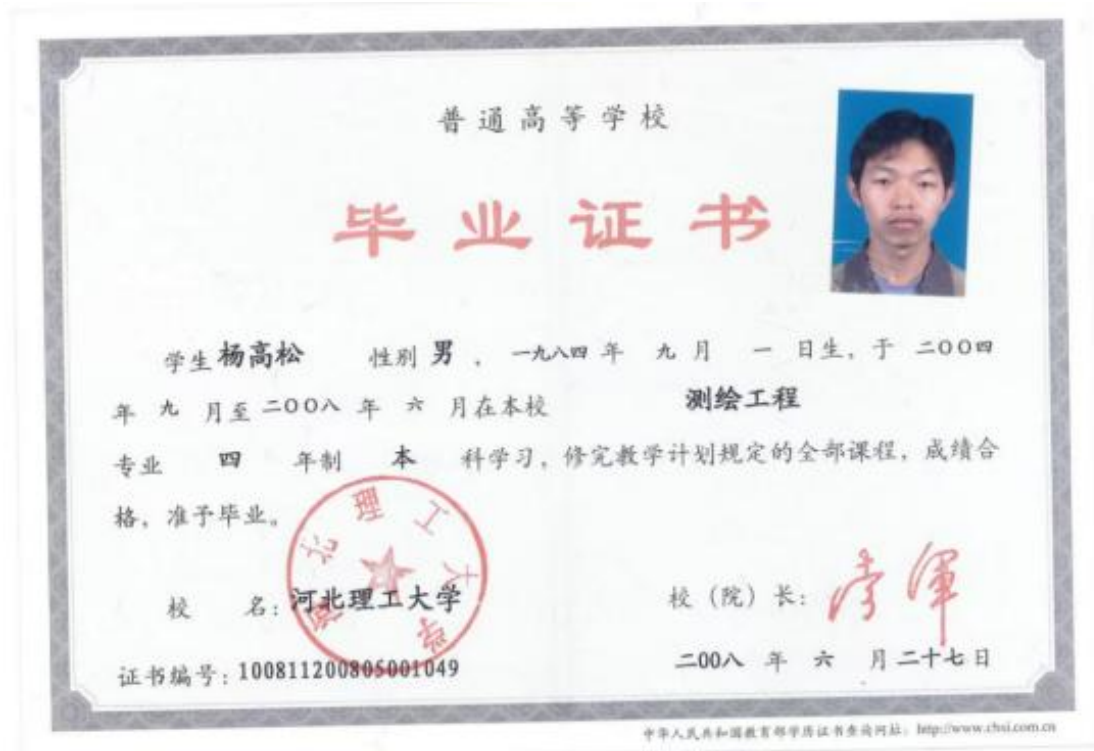 普通高等学校
毕业证书
学生 杨高松 性别 男 ，一九八四 年 九 月 一 日生，于 二〇〇四
年 九 月至 二〇〇八 年 六 月在本校 测绘工程
专业 四 年制 本 科学习，修完教学计划规定的全部课程，成绩合
格，准予毕业。
河北理工大学
校 名：河北理工大学
校（院）长：
证书编号：100811200805001049
二〇〇八 年 六 月 二十七 日
中华人民共和国教育部学历证书查询网址：http://www.chsi.com.cn